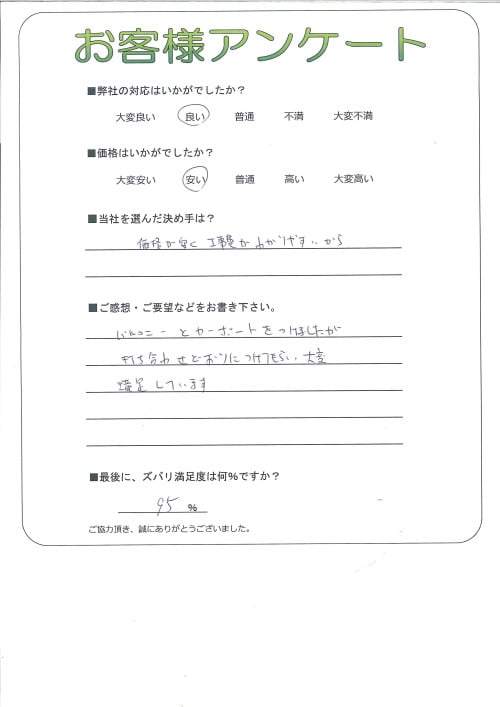 お客様アンケート
■弊社の対応はいかがでしたか？
大変良い 良い 普通 不満 大変不満
■価格はいかがでしたか？
大変安い 安い 普通 高い 大変高い
■当社を選んだ決め手は？
価格が安く 工事費がわかりやすいから
■ご感想・ご要望などをお書き下さい。
バルコニーとカーポートをつけましたが
打ち合わせどおりにつけてもらい、大変
満足しています
■最後に、ズバリ満足度は何％ですか？
95 ％
ご協力頂き、誠にありがとうございました。